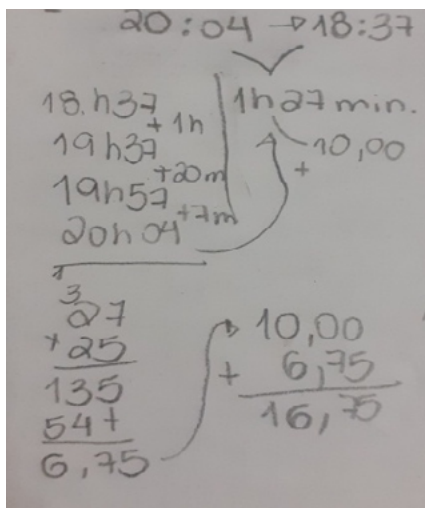 20:04 → 18:37
18.h37
+1h
19h37
+20m
19h57
+7m
20h04
1h27min.
10,00
+
1
3
27
+25
135
54+
6,75
10,00
+ 6,75
16,75